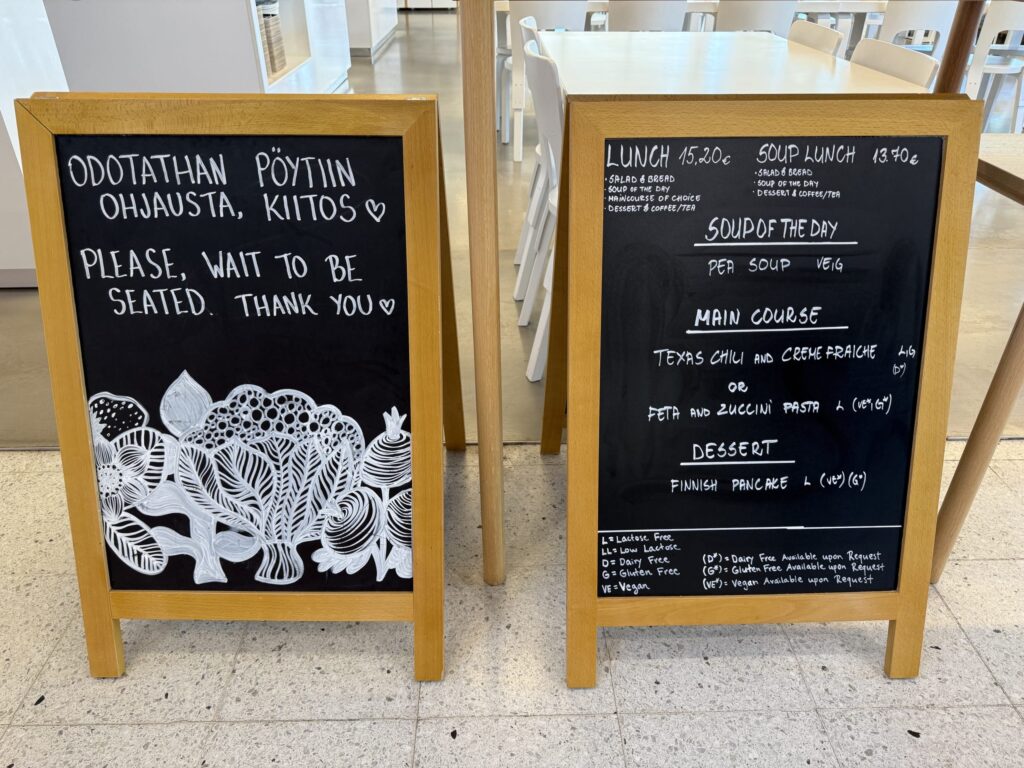 ODOTATHAN PÖYTIIN
OHJAUSTA, KIITOS ♡
PLEASE, WAIT TO BE
SEATED. THANK YOU ♡
LUNCH 15,20€
• SALAD & BREAD
• SOUP OF THE DAY
• MAINCOURSE OF CHOICE
• DESSERT & COFFEE/TEA
SOUP LUNCH 13.70€
• SALAD & BREAD
• SOUP OF THE DAY
• DESSERT & COFFEE/TEA
SOUP OF THE DAY
PEA SOUP VEIG
MAIN COURSE
TEXAS CHILI AND CREME FRAICHE L,G
(D*)
OR
FETA AND ZUCCINI PASTA L (VE*,(G*)
DESSERT
FINNISH PANCAKE L (VE*)(G*)
L = Lactose Free
LL = Low Lactose
D = Dairy Free
G = Gluten Free
VE = Vegan
(D*) = Dairy Free Available upon Request
(G*) = Gluten Free Available upon Request
(VE*) = Vegan Available upon Request